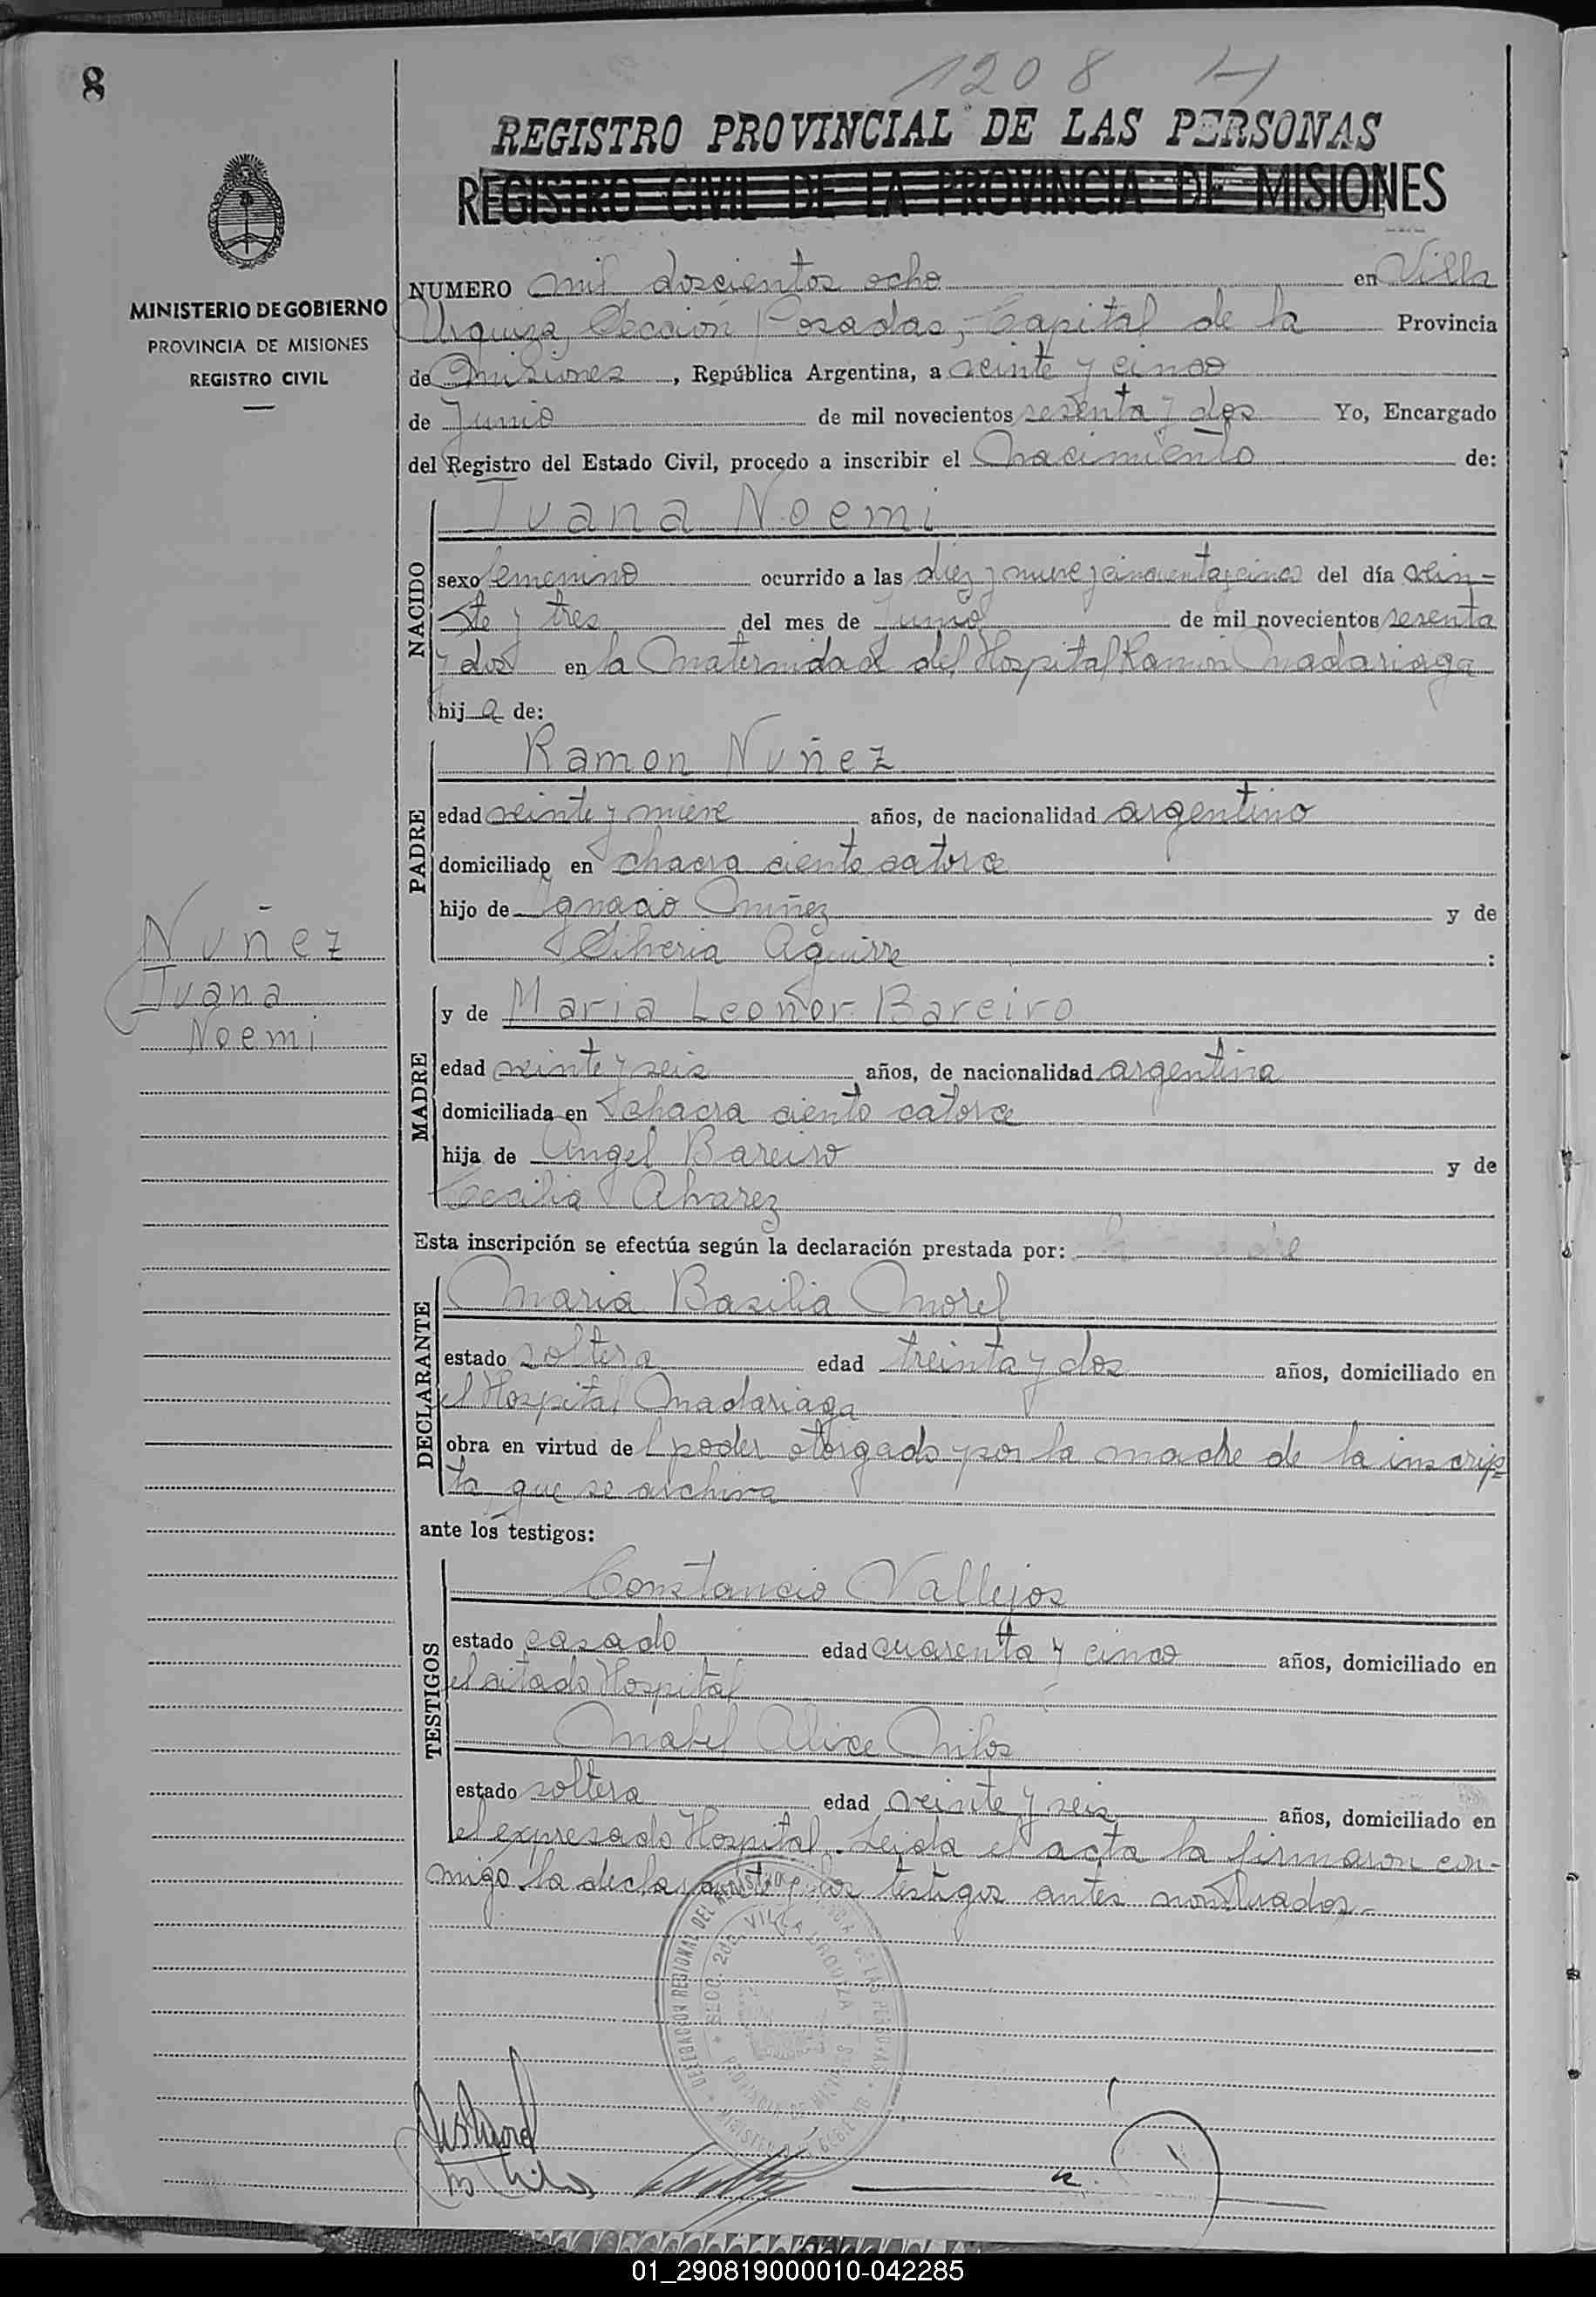 8
1208 H
REGISTRO PROVINCIAL DE LAS PERSONAS
REGISTRO CIVIL DE LA PROVINCIA DE MISIONES
MINISTERIO DE GOBIERNO
PROVINCIA DE MISIONES
REGISTRO CIVIL
NUMERO mil doscientos ocho en Villa
Urquiza, Sección Posadas, Capital de la Provincia
de Misiones, República Argentina, a veinte y cinco
de Junio de mil novecientos sesenta y dos Yo, Encargado
del Registro del Estado Civil, procedo a inscribir el Nacimiento de:
NACIDO
Juana Noemi
sexo femenino ocurrido a las diez y nueve y cincuenta y cinco del día vein=
te y tres del mes de Junio de mil novecientos sesenta
y dos en la Maternidad del Hospital Ramon Madariaga
hija de:
PADRE
Ramon Nuñez
edad veinte y nueve años, de nacionalidad argentino
domiciliado en chacra ciento catorce
hijo de Ignacio Nuñez y de
Silveria Aguirre :
Nuñez
Juana
Noemi
MADRE
y de Maria Leonor Bareiro
edad veinte y seis años, de nacionalidad argentina
domiciliada en chacra ciento catorce
hija de Angel Bareiro y de
Cecilia Alvarez
Esta inscripción se efectúa según la declaración prestada por:
DECLARANTE
Maria Basilia Morel
estado soltera edad treinta y dos años, domiciliado en
el Hospital Madariaga
obra en virtud del poder otorgado por la madre de la inscrip=
ta que se archiva
ante los testigos:
TESTIGOS
Constancio Vallejos
estado casado edad cuarenta y cinco años, domiciliado en
el citado Hospital
Mabel Alice Milos
estado soltera edad veinte y seis años, domiciliado en
el expresado Hospital. Leida el acta la firmaron con-
migo la declarante y los testigos antes nombrados.-
DELEGACION REGIONAL DEL REGISTRO PROVINCIAL DE LAS PERSONAS
SECC. 2da. VILLA URQUIZA
PROVINCIA DE MISIONES
01_290819000010-042285